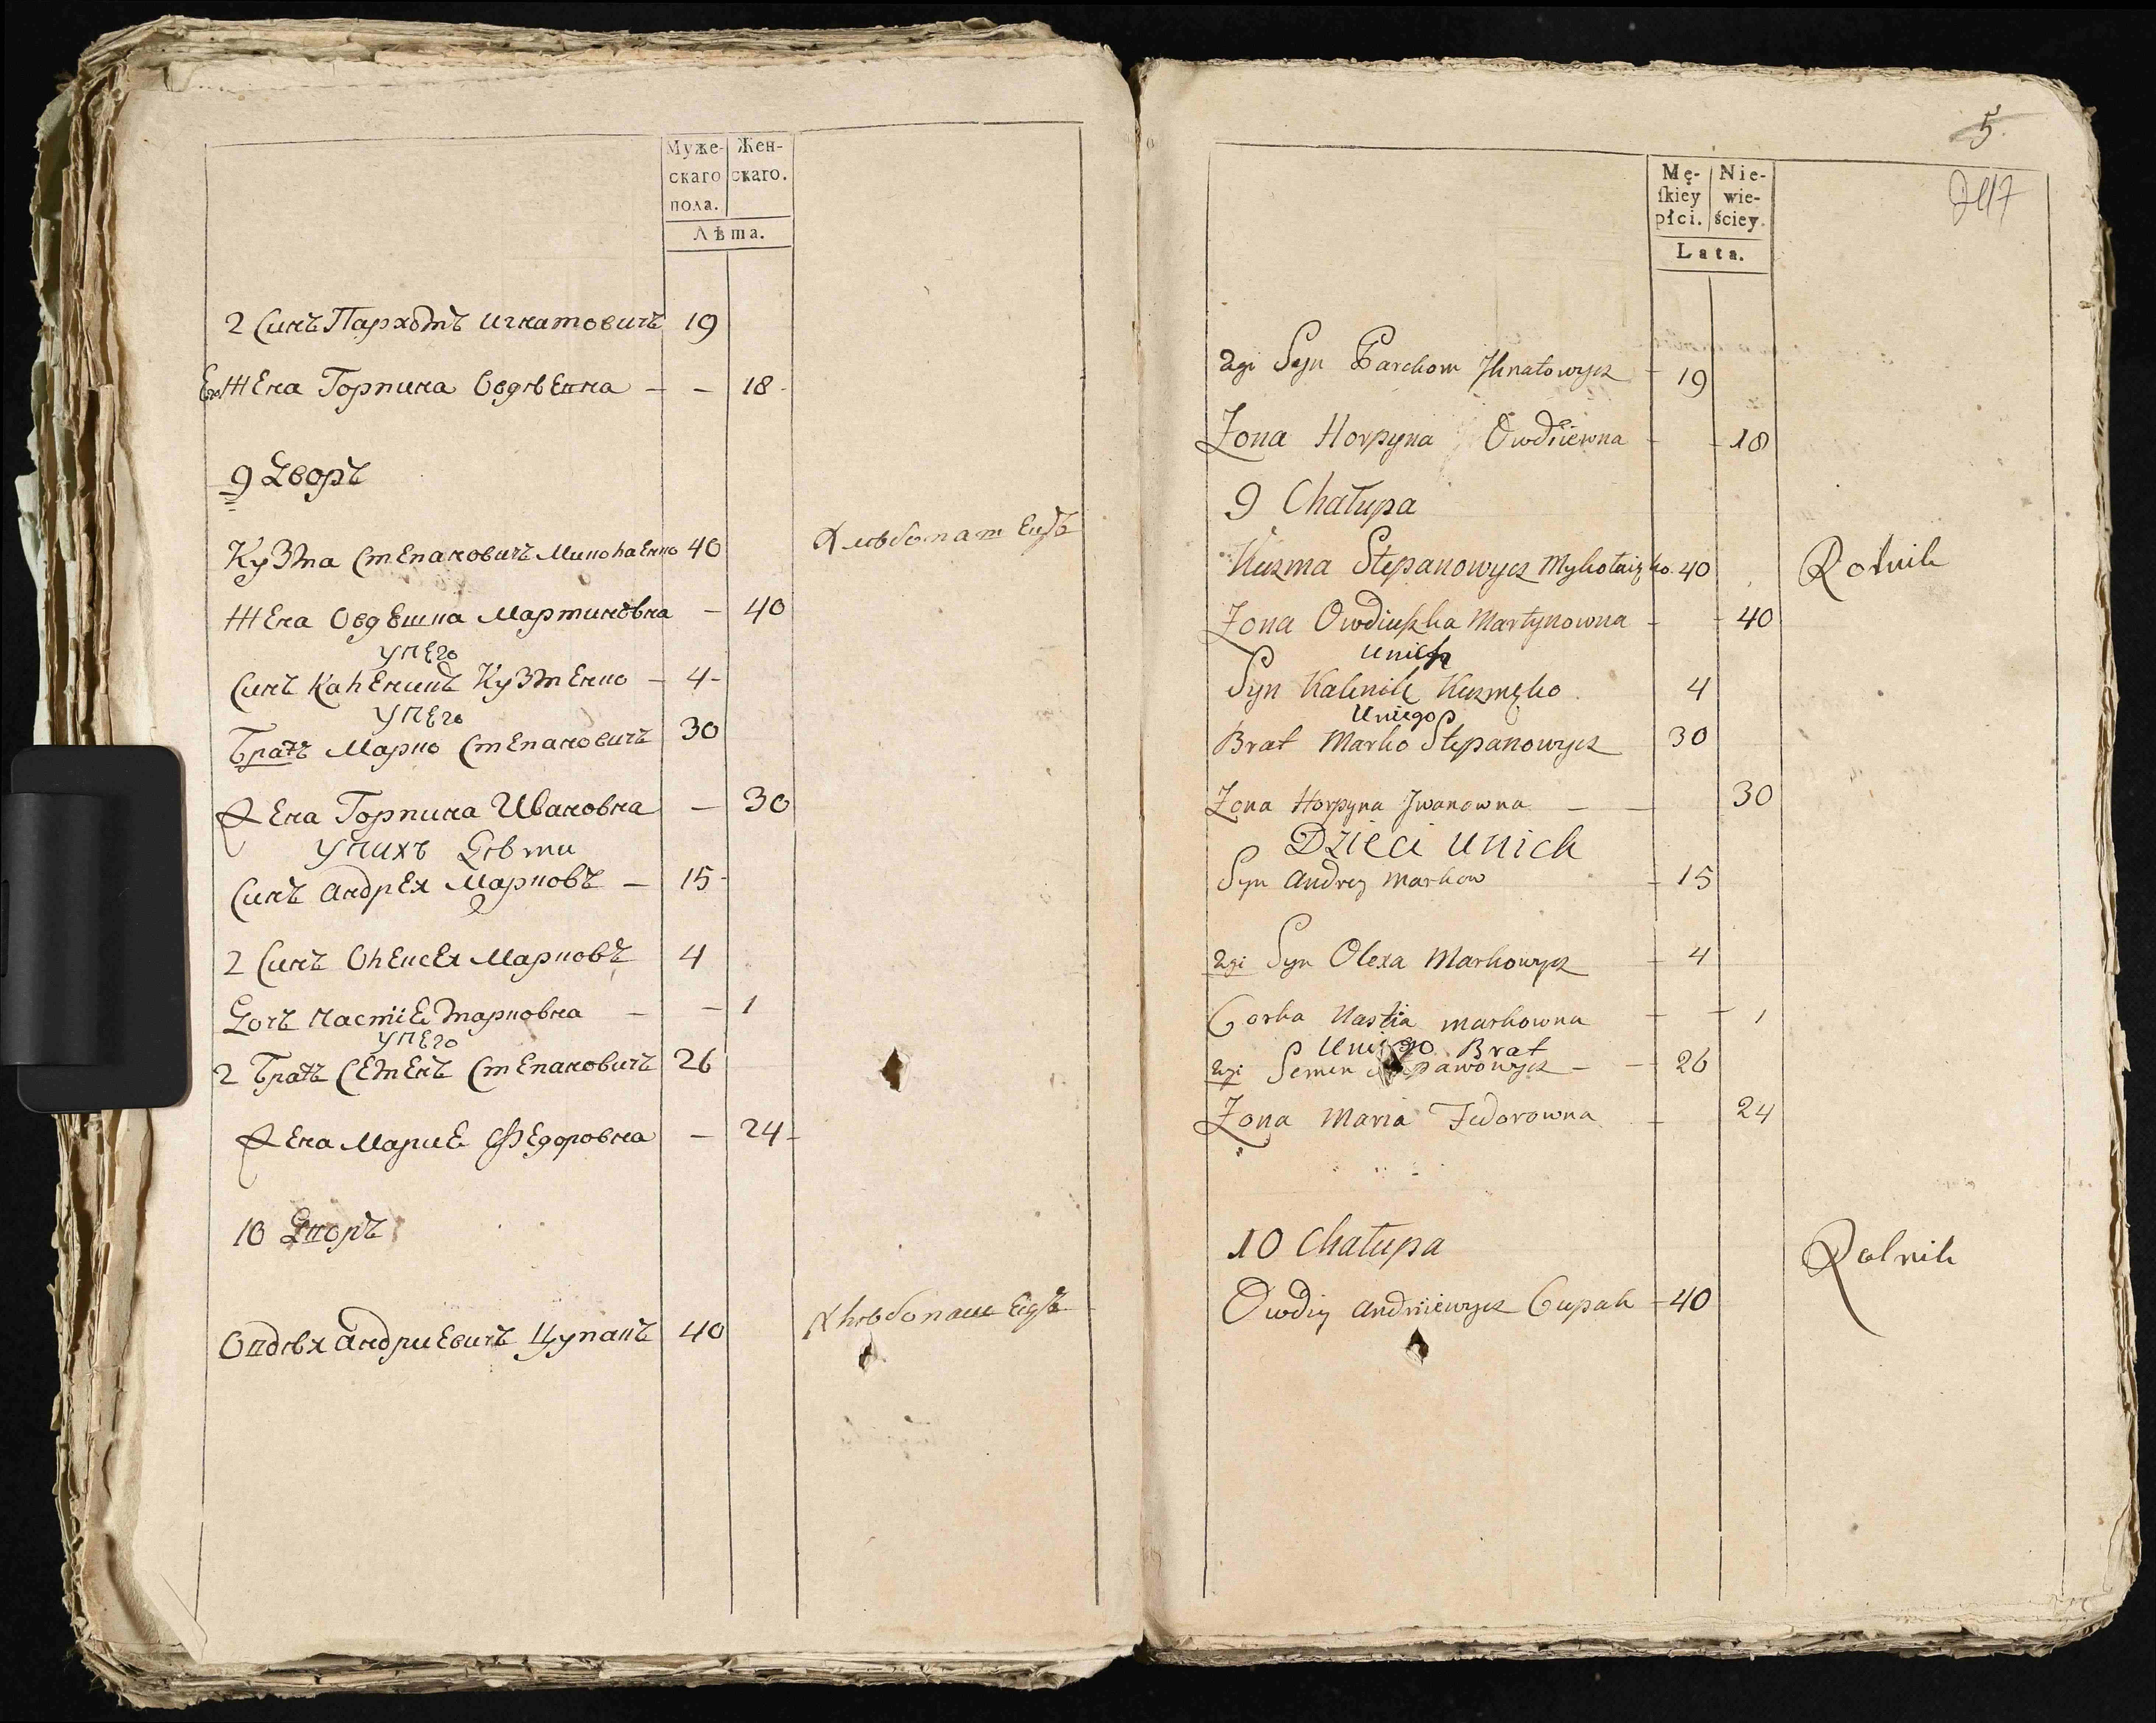 Муже-
скаго
пола.
Жен-
скаго.
Лѣта.
2 Синъ Пархомъ Игнатовичъ 19
Его Жена Горпина Овдѣевна — — 18
9 Дворъ
Кузма Степановичъ Миколаенко 40 Хлѣбопат ецъ
Жена Овдюшка Мартиновна — 40
У него
Синъ Каленикъ Кузменко — 4
У него
Братъ Марко Степановичъ 30
Жена Горпина Ивановна — 30
У нихъ Дѣти
Синъ Андрей Марковъ — 15
2 Синъ Олексей Марковъ 4
Дочъ Настіе Марковна — — 1
У него
2 Братъ Семенъ Степановичъ 26
Жена Марие Федоровна — 24
10 Дворъ
Овдѣй Андриевичъ Цупакъ 40
5
Mę-
skiey
płci.
Nie-
wie-
ściey.
Lata.
2gi Syn Parchom Ihnatowycz 19
Zona Horpyna Owdiiewna 18
9 Chałupa
Kuzma Stepanowycz Mykołaięko 40 Rolnik
Zona Owdiuszka Martynowna 40
U nich
Syn Kalenik Kuzmęko 4
U niego
Brat Marko Stepanowycz 30
Zona Horpyna Iwanowna — — 30
Dzieci U nich
Syn Andrey Markow 15
2gi Syn Olexa Markowycz 4
Corka Nastia Markowna 1
U niego Brat
2gi Semen panowycz — — 26
Zona Maria Fedorowna 24
10 Chałupa
Rolnik
Owdiy Andriiewycz Cupak 40